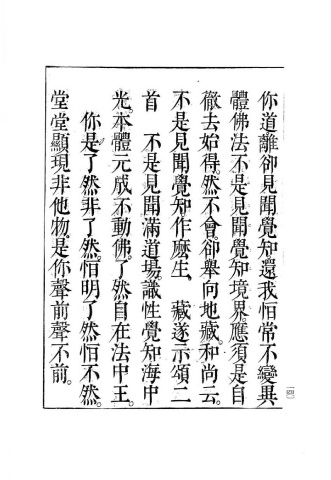 你道離卻見聞覺知還我恒常不變異
體佛法不是見聞覺知境界應須是自
徹去始得。然不會卻舉向地藏。和尚云。
不是見聞覺知作麽生。　藏遂示頌二
首　不是見聞滿道場。識性覺知海中
光。本體元成不動佛。了然自在法中王。
你是了然非了然。恒明了然恒不然。
堂堂顯現非他物。是你聲前聲不前。